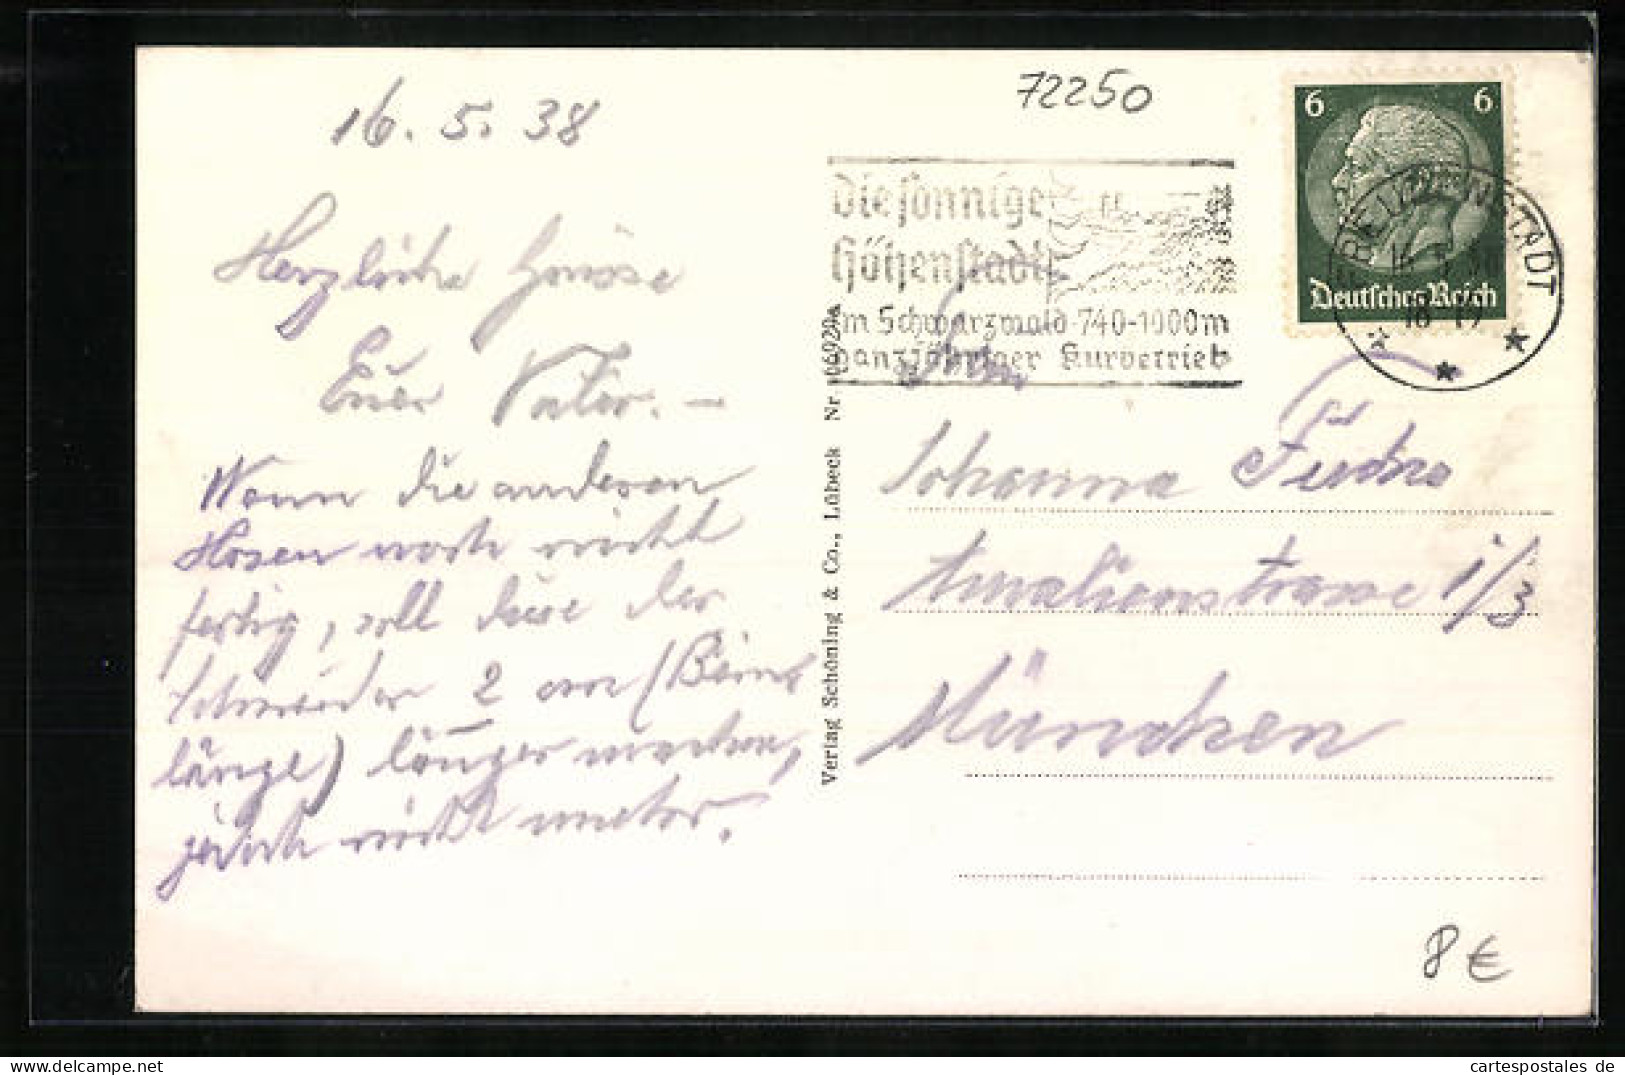 16. 5. 38
Herzliche Grüsse
Euer Vater. —
Wenn die anderen
Hosen noch nicht
fertig, soll diese der
Schneider 2 cm (Bein
länge) länger machen,
jedoch nicht unten.
72250
die sonnige
Höhenstadt
im Schwarzwald 740-1000m
ganzjähriger Kurbetrieb
6 6
Deutsches Reich
FREUDENSTADT
16. 5. 38
Verlag Schöning & Co., Lübeck Nr. 06920a
Frau
Johanna Fuchs
Amalienstrasse 1/3
München
8 €
cartespostales de